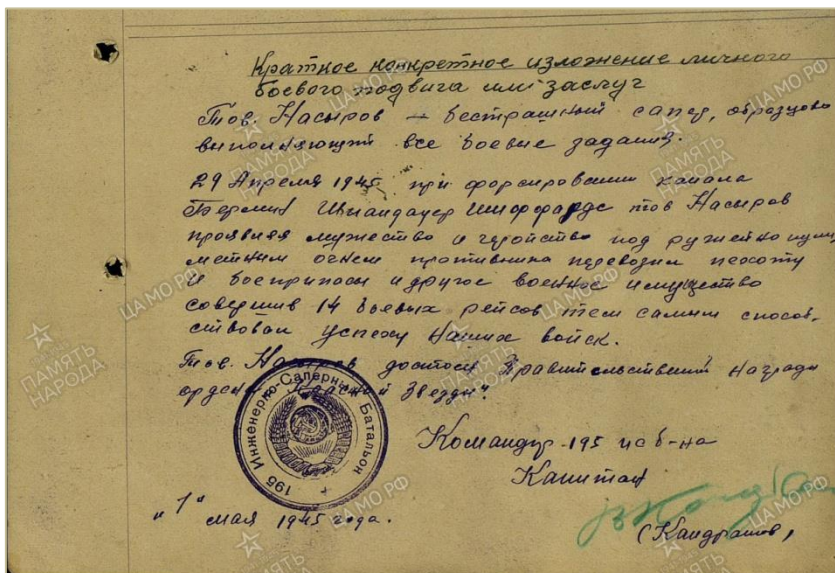 Краткое конкретное изложение личного
боевого подвига или заслуг
Тов. Насыров — бестрашный сапер, образцово
выполняющий все боевые задания.
29 Апреля 1945 при форсировании канала
Берлин Шпандауер Шиффардс тов Насыров
проявляя мужество и геройство под ружейно пуле
метным огнем противника перевозил пехоту
и боеприпасы и другое военное имущество
совершив 14 боевых рейсов тем самым способ-
ствовал успеху наших войск.
Тов. Насыров достоин Правительственной награды
ордена "Красной Звезды".
195 Инженерно-Саперный Батальон
Командир 195 исб-на
Капитан
(Кандрашов)
"1" мая 1945 года.
ПАМЯТЬ НАРОДА
ЦАМО РФ